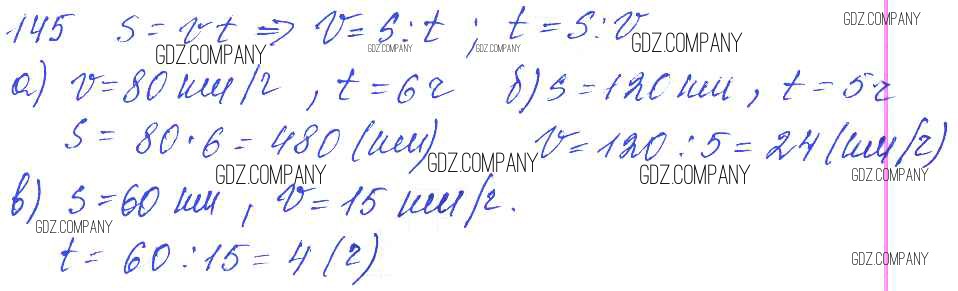 145 s = vt ⇒ v = s : t ; t = s : v
а) v = 80 км/ч , t = 6 ч б) s = 120 км , t = 5 ч
s = 80 · 6 = 480 (км) v = 120 : 5 = 24 (км/ч)
в) s = 60 км , v = 15 км/ч.
t = 60 : 15 = 4 (ч)
GDZ.COMPANY
GDZ.COMPANY
GDZ.COMPANY
GDZ.COMPANY
GDZ.COMPANY
GDZ.COMPANY
GDZ.COMPANY
GDZ.COMPANY
GDZ.COMPANY
GDZ.COMPANY
GDZ.COMPANY
GDZ.COMPANY